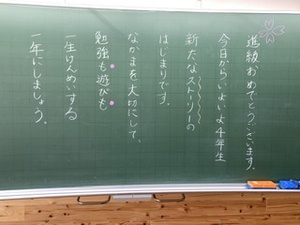 進級おめでとうございます。
今日からいよいよ4年生
新たなストーリーの
はじまりです。
なかまを大切にして、
勉強も遊びも
一生けんめいする
一年にしましょう。